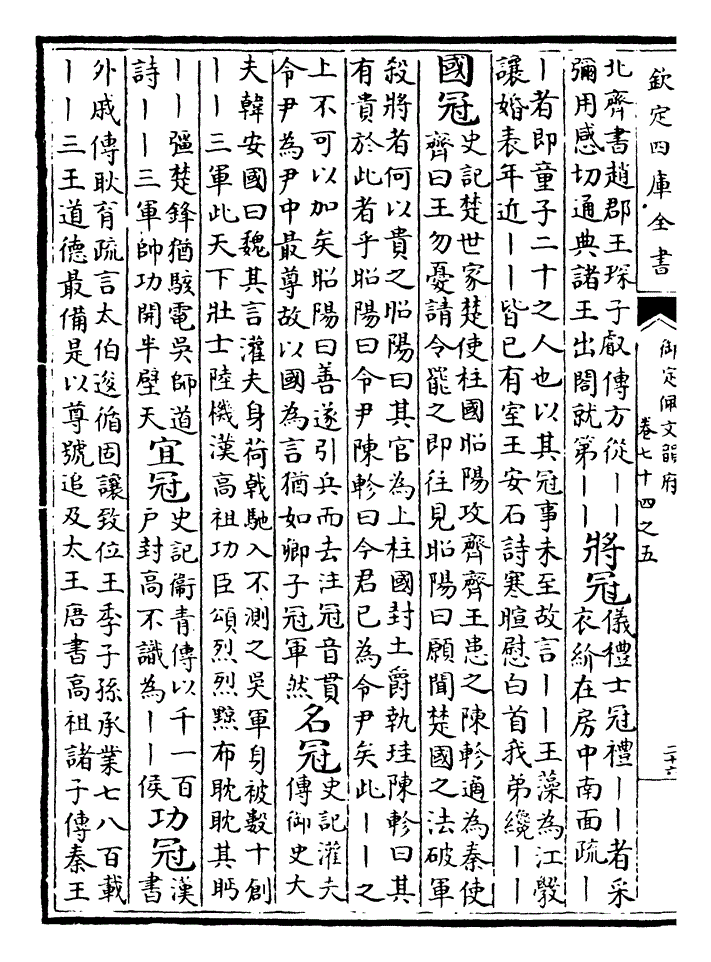 欽定四庫全書
御定佩文韻府
卷七十四之五
二十六
北齊書趙郡王琛子叡傳方從丨丨
彌用感切通典諸王出閤就第丨丨
將冠
儀禮士冠禮丨丨者采
衣紒在房中南面疏丨
丨者即童子二十之人也以其冠事未至故言丨丨王藻為江斆
讓婚表年近丨丨皆已有室王安石詩寒暄慰白首我弟纔丨丨
國冠
史記楚世家楚使柱國昭陽攻齊齊王患之陳軫適為秦使
齊曰王勿憂請令罷之即往見昭陽曰願聞楚國之法破軍
殺將者何以貴之昭陽曰其官為上柱國封土爵執珪陳軫曰其
有貴於此者乎昭陽曰令尹陳軫曰今君已為令尹矣此丨丨之
上不可以加矣昭陽曰善遂引兵而去注冠音貫
令尹為尹中最尊故以國為言猶如卿子冠軍然
名冠
史記灌夫
傳御史大
夫韓安國曰魏其言灌夫身荷戟馳入不測之吳軍身被數十創
丨丨三軍此天下壯士陸機漢高祖功臣頌烈烈黥布耽耽其眄
丨丨彊楚鋒猶駭電吳師道
詩丨丨三軍帥功開半壁天
宜冠
史記衞青傳以千一百
戶封高不識為丨丨侯
功冠
漢
書
外戚傳耿育疏言太伯逡循固讓致位王季子孫承業七八百載
丨丨三王道德最備是以尊號追及太王唐書高祖諸子傳秦王